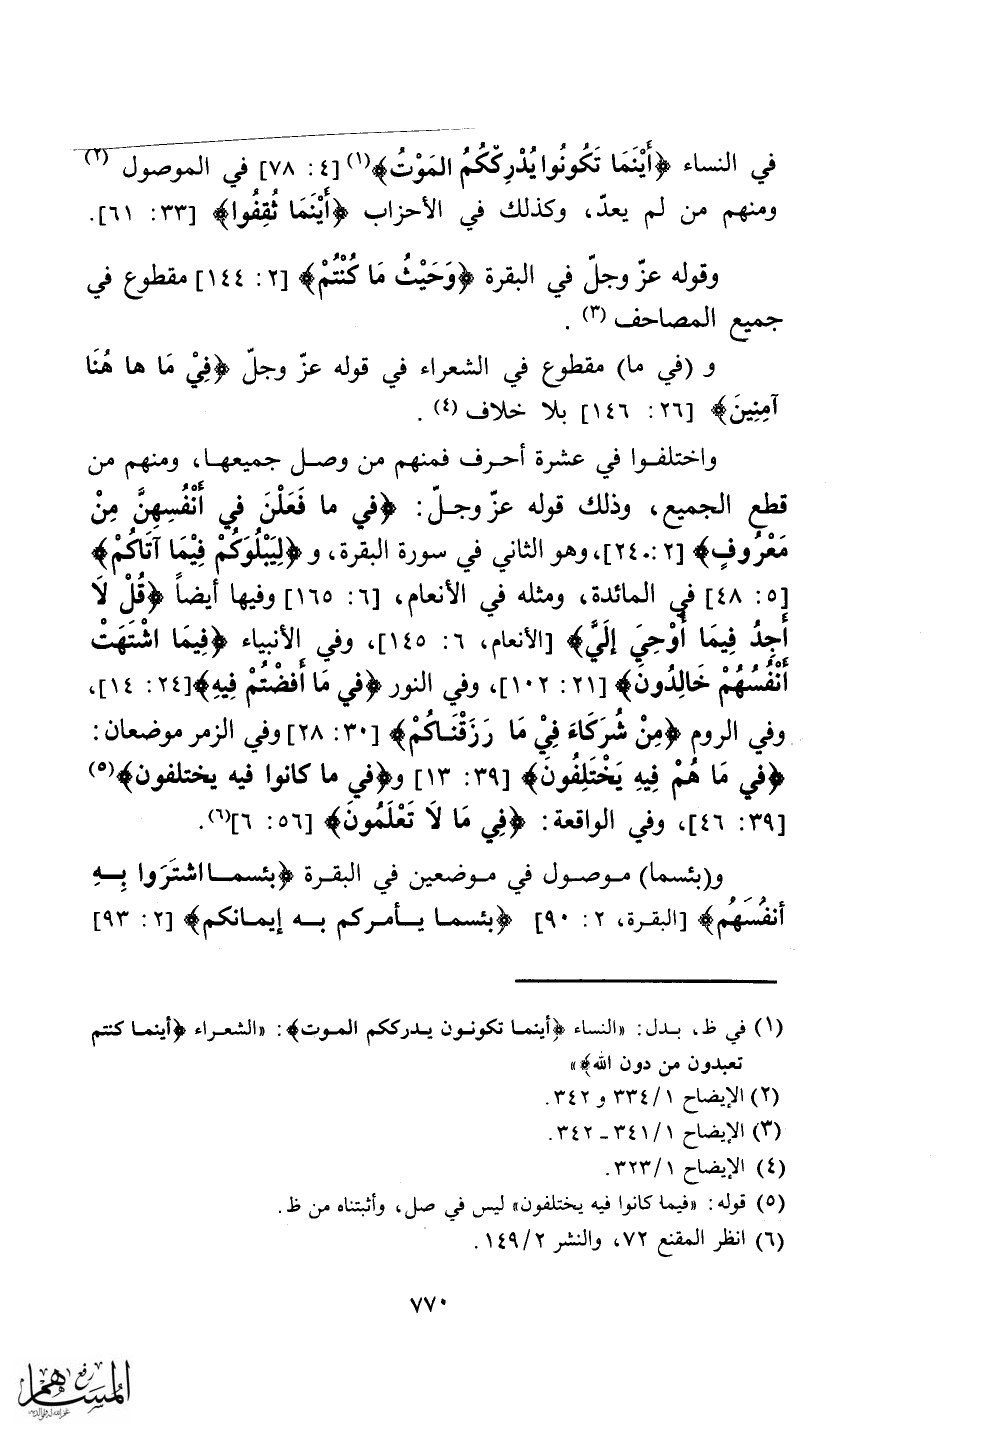 في النساء ﴿أَيْنَمَا تَكُونُوا يُدْرِكْكُمُ المَوْتُ﴾(١) [٤: ٧٨] في الموصول (٢)
ومنهم من لم يعدّ، وكذلك في الأحزاب ﴿أَيْنَمَا ثُقِفُوا﴾ [٣٣: ٦١].
وقوله عزّ وجلّ في البقرة ﴿وَحَيْثُ مَا كُنْتُمْ﴾ [٢: ١٤٤] مقطوع في
جميع المصاحف (٣) .
و (في ما) مقطوع في الشعراء في قوله عزّ وجلّ ﴿فِيْ مَا ها هُنَا
آمِنِينَ﴾ [٢٦: ١٤٦] بلا خلاف (٤) .
واختلفوا في عشرة أحرف فمنهم من وصل جميعها، ومنهم من
قطع الجميع، وذلك قوله عزّ وجلّ: ﴿في ما فَعَلْنَ في أَنْفُسِهِنَّ مِنْ
مَعْرُوفٍ﴾ [٢: ٢٤٠]، وهو الثاني في سورة البقرة، و ﴿لِيَبْلُوَكُمْ فِيْمَا آتَاكُمْ﴾
[٥: ٤٨] في المائدة، ومثله في الأنعام، [٦: ١٦٥] وفيها أيضاً ﴿قُلْ لَا
أَجِدُ فِيمَا أُوْحِيَ إِلَيَّ﴾ [الأنعام، ٦: ١٤٥]، وفي الأنبياء ﴿فِيمَا اشْتَهَتْ
أَنْفُسُهُمْ خَالِدُونَ﴾ [٢١: ١٠٢]، وفي النور ﴿في مَا أَفَضْتُمْ فِيهِ﴾[٢٤: ١٤]،
وفي الروم ﴿مِنْ شُرَكَاءَ فِيْ مَا رَزَقْنَاكُمْ﴾ [٣٠: ٢٨] وفي الزمر موضعان:
﴿في مَا هُمْ فِيهِ يَخْتَلِفُونَ﴾ [٣٩: ١٣] و﴿في ما كانوا فيه يختلفون﴾(٥)
[٣٩: ٤٦]، وفي الواقعة: ﴿فِي مَا لَا تَعْلَمُونَ﴾ [٥٦: ٦](٦).
و(بئسما) موصول في موضعين في البقرة ﴿بئسما اشتَرَوا بِهِ
أنفُسَهُم﴾ [البقرة، ٢: ٩٠] ﴿بئسما يأمركم به إيمانكم﴾ [٢: ٩٣]
(١) في ظ، بدل: «النساء ﴿أينما تكونون يدرككم الموت﴾: «الشعراء ﴿أينما كنتم
تعبدون من دون الله﴾»
(٢) الإيضاح ١/٣٣٤ و ٣٤٢.
(٣) الإيضاح ١/٣٤١ - ٣٤٢.
(٤) الإيضاح ١/٣٢٣.
(٥) قوله: «فيما كانوا فيه يختلفون» ليس في صل، وأثبتناه من ظ.
(٦) انظر المقنع ٧٢، والنشر ٢/١٤٩.
٧٧٠
رفع
المساهم